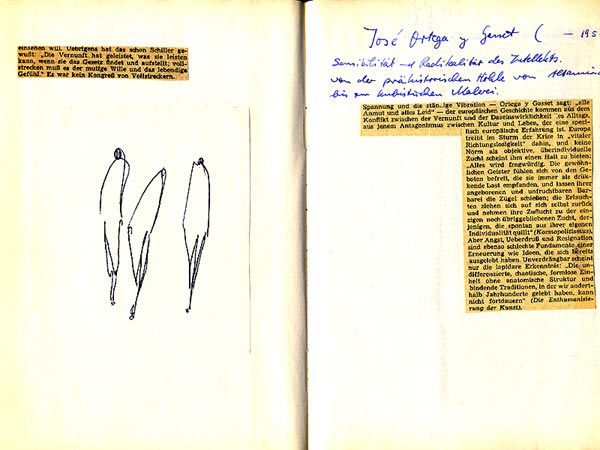 einsehen will. Uebrigens hat das schon Schiller ge-
wußt: „Die Vernunft hat geleistet, was sie leisten
kann, wenn sie das Gesetz findet und aufstellt; voll-
strecken muß es der mutige Wille und das lebendige
Gefühl.“ Es war kein Kongreß von Vollstreckern.
José Ortega y Gasset ( – 195
Sensibilität und Radikalität des Intellekts.
von der prähistorischen Höhle von Altamira
bis zur kubistischen Malerei.
Spannung und die ständige Vibration — Ortega y Gasset sagt: „alle
Anmut und alles Leid“ — der europäischen Geschichte kommen aus dem
Konflikt zwischen der Vernunft und der Daseinswirklichkeit des Alltags,
aus jenem Antagonismus zwischen Kultur und Leben, der eine spezi-
fisch europäische Erfahrung ist. Europa
treibt im Sturm der Krise in „vitaler
Richtungslosigkeit“ dahin, und keine
Norm als objektive, überindividuelle
Zucht scheint ihm einen Halt zu bieten:
„Alles wird fragwürdig. Die gewöhn-
lichen Geister fühlen sich von den Ge-
boten befreit, die sie immer als drük-
kende Last empfanden, und lassen ihrer
angeborenen und unfruchtbaren Bar-
barei die Zügel schießen; die Erlauch-
ten ziehen sich auf sich selbst zurück
und nehmen ihre Zuflucht zu der ein-
zigen noch übriggebliebenen Zucht, der-
jenigen, die spontan aus ihrer eigenen
Individualität quillt“ (Kosmopolitismus).
Aber Angst, Ueberdruß und Resignation
sind ebenso schlechte Fundamente einer
Erneuerung wie Ideen, die sich bereits
ausgelebt haben. Unverdrängbar scheint
nur die lapidare Erkenntnis: „Die un-
differenzierte, chaotische, formlose Ein-
heit ohne anatomische Struktur und
bindende Traditionen, in der wir andert-
halb Jahrhunderte gelebt haben, kann
nicht fortdauern“ (Die Enthumanisie-
rung der Kunst).